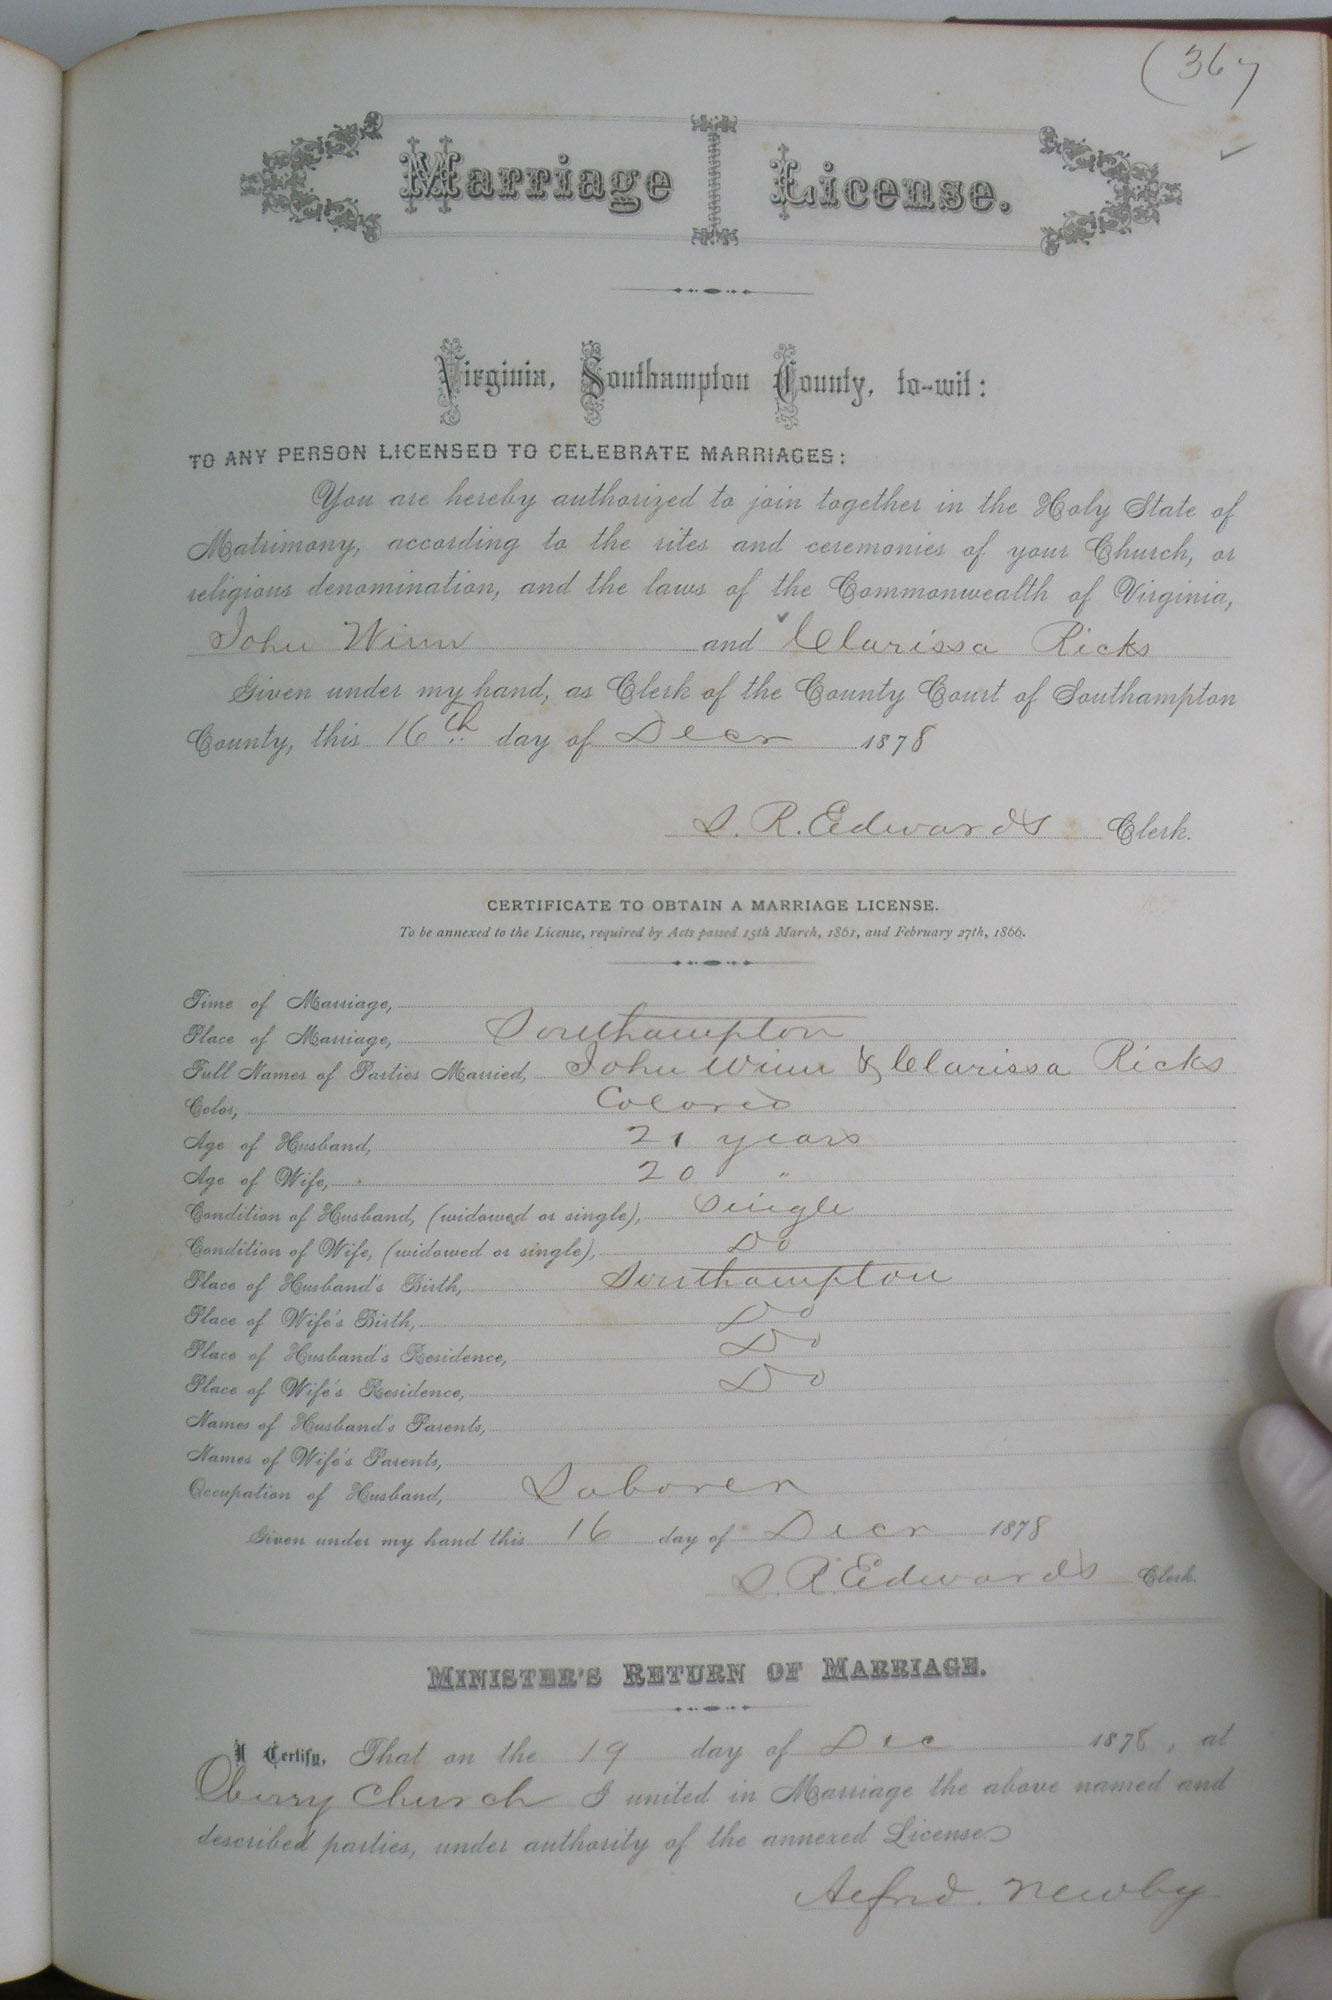 (367
Marriage License.
Virginia, Southampton County, to-wit:
TO ANY PERSON LICENSED TO CELEBRATE MARRIAGES:
You are hereby authorized to join together in the Holy State of
Matrimony, according to the rites and ceremonies of your Church, or
religious denomination, and the laws of the Commonwealth of Virginia,
John Winn and Clarissa Ricks
Given under my hand, as Clerk of the County Court of Southampton
County, this 16th day of Decr 1878
L. R. Edwards Clerk.
CERTIFICATE TO OBTAIN A MARRIAGE LICENSE.
To be annexed to the License, required by Acts passed 15th March, 1861, and February 27th, 1866.
Time of Marriage,
Place of Marriage, Southampton
Full Names of Parties Married, John Winn & Clarissa Ricks
Color, Colored
Age of Husband, 21 years
Age of Wife, 20 "
Condition of Husband, (widowed or single), Single
Condition of Wife, (widowed or single), Do
Place of Husband's Birth, Southampton
Place of Wife's Birth, Do
Place of Husband's Residence, Do
Place of Wife's Residence, Do
Names of Husband's Parents,
Names of Wife's Parents,
Occupation of Husband, Laborer
Given under my hand this 16 day of Decr 1878
L. R. Edwards Clerk.
MINISTER'S RETURN OF MARRIAGE.
I Certify, That on the 19 day of Dec 1878, at
Oberry Church I united in Marriage the above named and
described parties, under authority of the annexed License
Alfrd. Newby